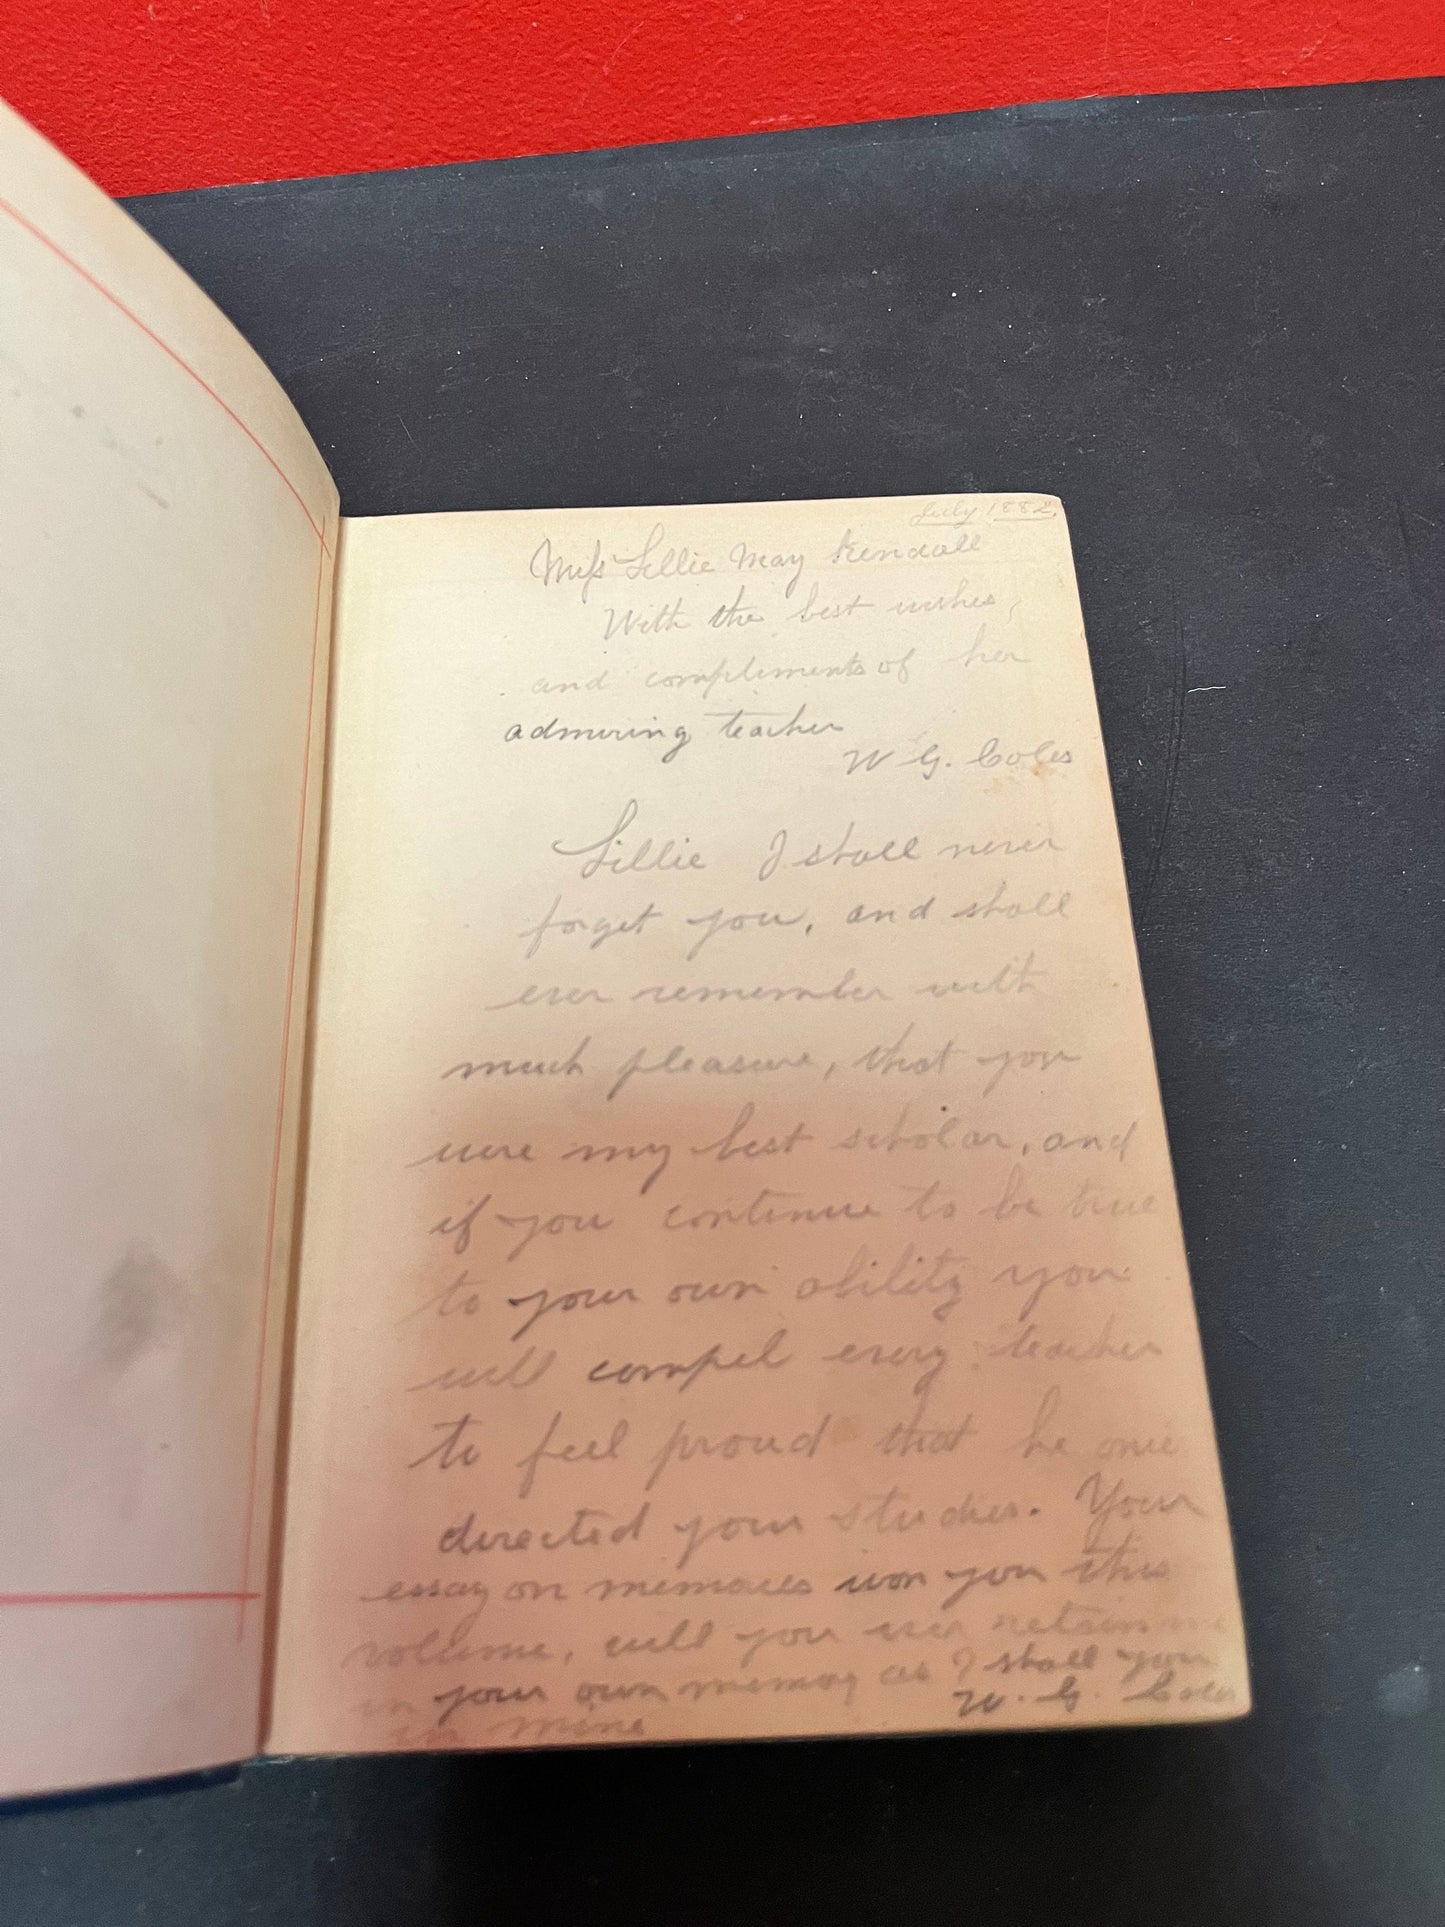 July 1882.
Miss Lillie May Kendall
With the best wishes,
and compliments of her
admiring teacher
W G. Coles
Lillie I shall never
forget you, and shall
ever remember with
much pleasure, that you
were my best scholar, and
if you continue to be true
to your own ability you
will compel every teacher
to feel proud that he once
directed your studies. Your
essay on memories won you this
volume, will you ever retain me
in your own memory as I shall you
in mine W. G. Coles